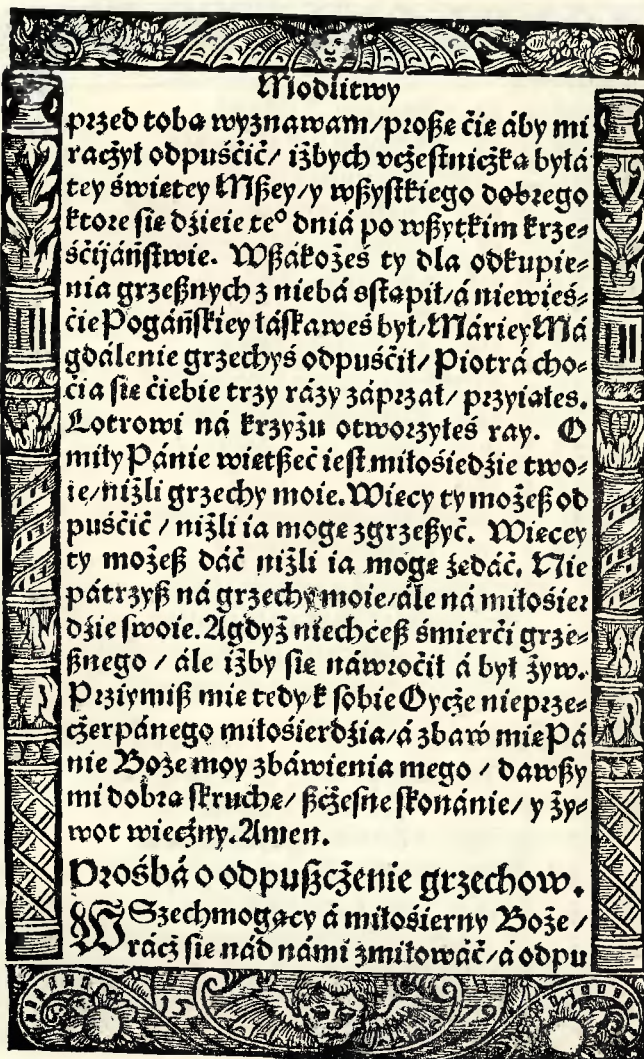 Modlitwy
przed tobą wyznawam/proßę ćię áby mi
raczył odpuśćić/ iżbych vcżestnicżką byłá
tey świętey Mßey/y wßystkiego dobrego
ktore się dźieie teº dniá po wßytkim krze⸗
śćijáństwie. Wßákożeś ty dla odkupie⸗
nia grzeßnych z niebá sstąpił/á niewieś⸗
ćie Pogáńskiey łáskaweś był/Máriey Má
gdálenie grzechyś odpuśćił/ Piotrá cho⸗
ćia się ćiebie trzy rázy záprzał/ przyiąłeś.
Lotrowi ná krzyżu otworzyłeś ray. O
miły Pánie więtßeć iest miłośiedźie two⸗
ie/niżli grzechy moie. Więcy ty możeß od
puśćić / niżli ia mogę zgrzeßyć. Więcey
ty możeß dáć niżli ia mogę żędáć. Nie
pátrzyß ná grzechy moie/ále ná miłośier
dźie swoie. A gdyż niechceß śmierći grze⸗
ßnego / ále iżby się náwroćił á był żyw.
Prziymiß mię tedy k sobie Oycże nieprze⸗
cżerpánego miłośierdźia/á zbaw mię Pá
nie Boże moy zbáwienia mego / dawßy
mi dobrą skruchę/ ßcżęsne skonánie/ y ży⸗
wot wiecżny. Amen.
Prośbá o odpußcżenie grzechow.
WSzechmogący á miłośierny Boże /
rácż się nád námi zmiłowáć/á odpu
15 79